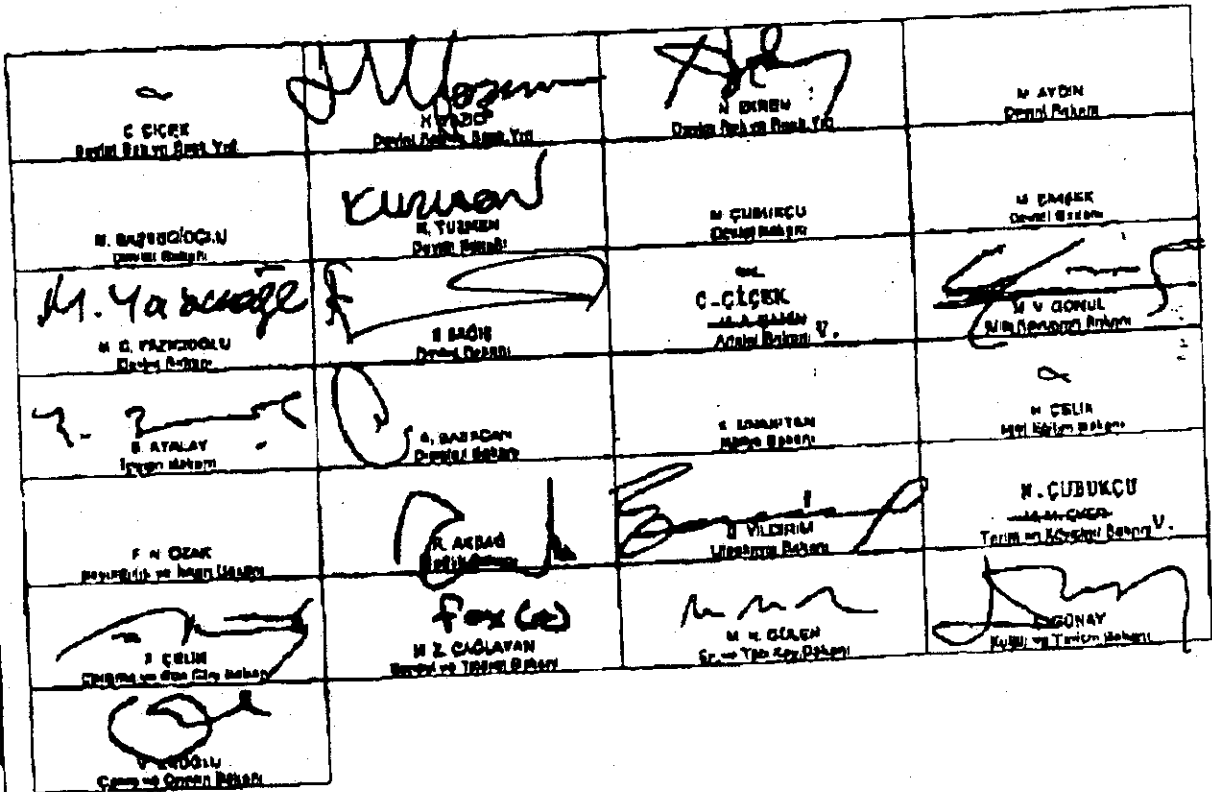 C. ÇİÇEK
Devlet Bak. ve Başb. Yrd.
H. YAZICI
Devlet Bak. ve Başb. Yrd.
N. EKREN
Devlet Bak. ve Başb. Yrd.
M. AYDIN
Devlet Bakanı
M. BAŞESGİOĞLU
Devlet Bakanı
K. TÜZMEN
Devlet Bakanı
N. ÇUBUKÇU
Devlet Bakanı
M. ŞİMŞEK
Devlet Bakanı
M. Yazıcıoğlu
M. S. YAZICIOĞLU
Devlet Bakanı
E. BAĞIŞ
Devlet Bakanı
C. ÇİÇEK
M. A. ŞAHİN
Adalet Bakanı V.
M. V. GÖNÜL
Milli Savunma Bakanı
B. ATALAY
İçişleri Bakanı
A. BABACAN
Dışişleri Bakanı
K. UNAKITAN
Maliye Bakanı
H. ÇELİK
Milli Eğitim Bakanı
F. N. ÖZAK
Bayındırlık ve İskan Bakanı
R. AKDAĞ
Sağlık Bakanı
B. YILDIRIM
Ulaştırma Bakanı
N. ÇUBUKÇU
M. M. EKER
Tarım ve Köyişleri Bakanı V.
F. ÇELİK
Çalışma ve Sos. Güv. Bakanı
M. Z. ÇAĞLAYAN
Sanayi ve Ticaret Bakanı
M. H. GÜLER
En. ve Tabi Kay. Bakanı
E. GÜNAY
Kültür ve Turizm Bakanı
V. EROĞLU
Çevre ve Orman Bakanı